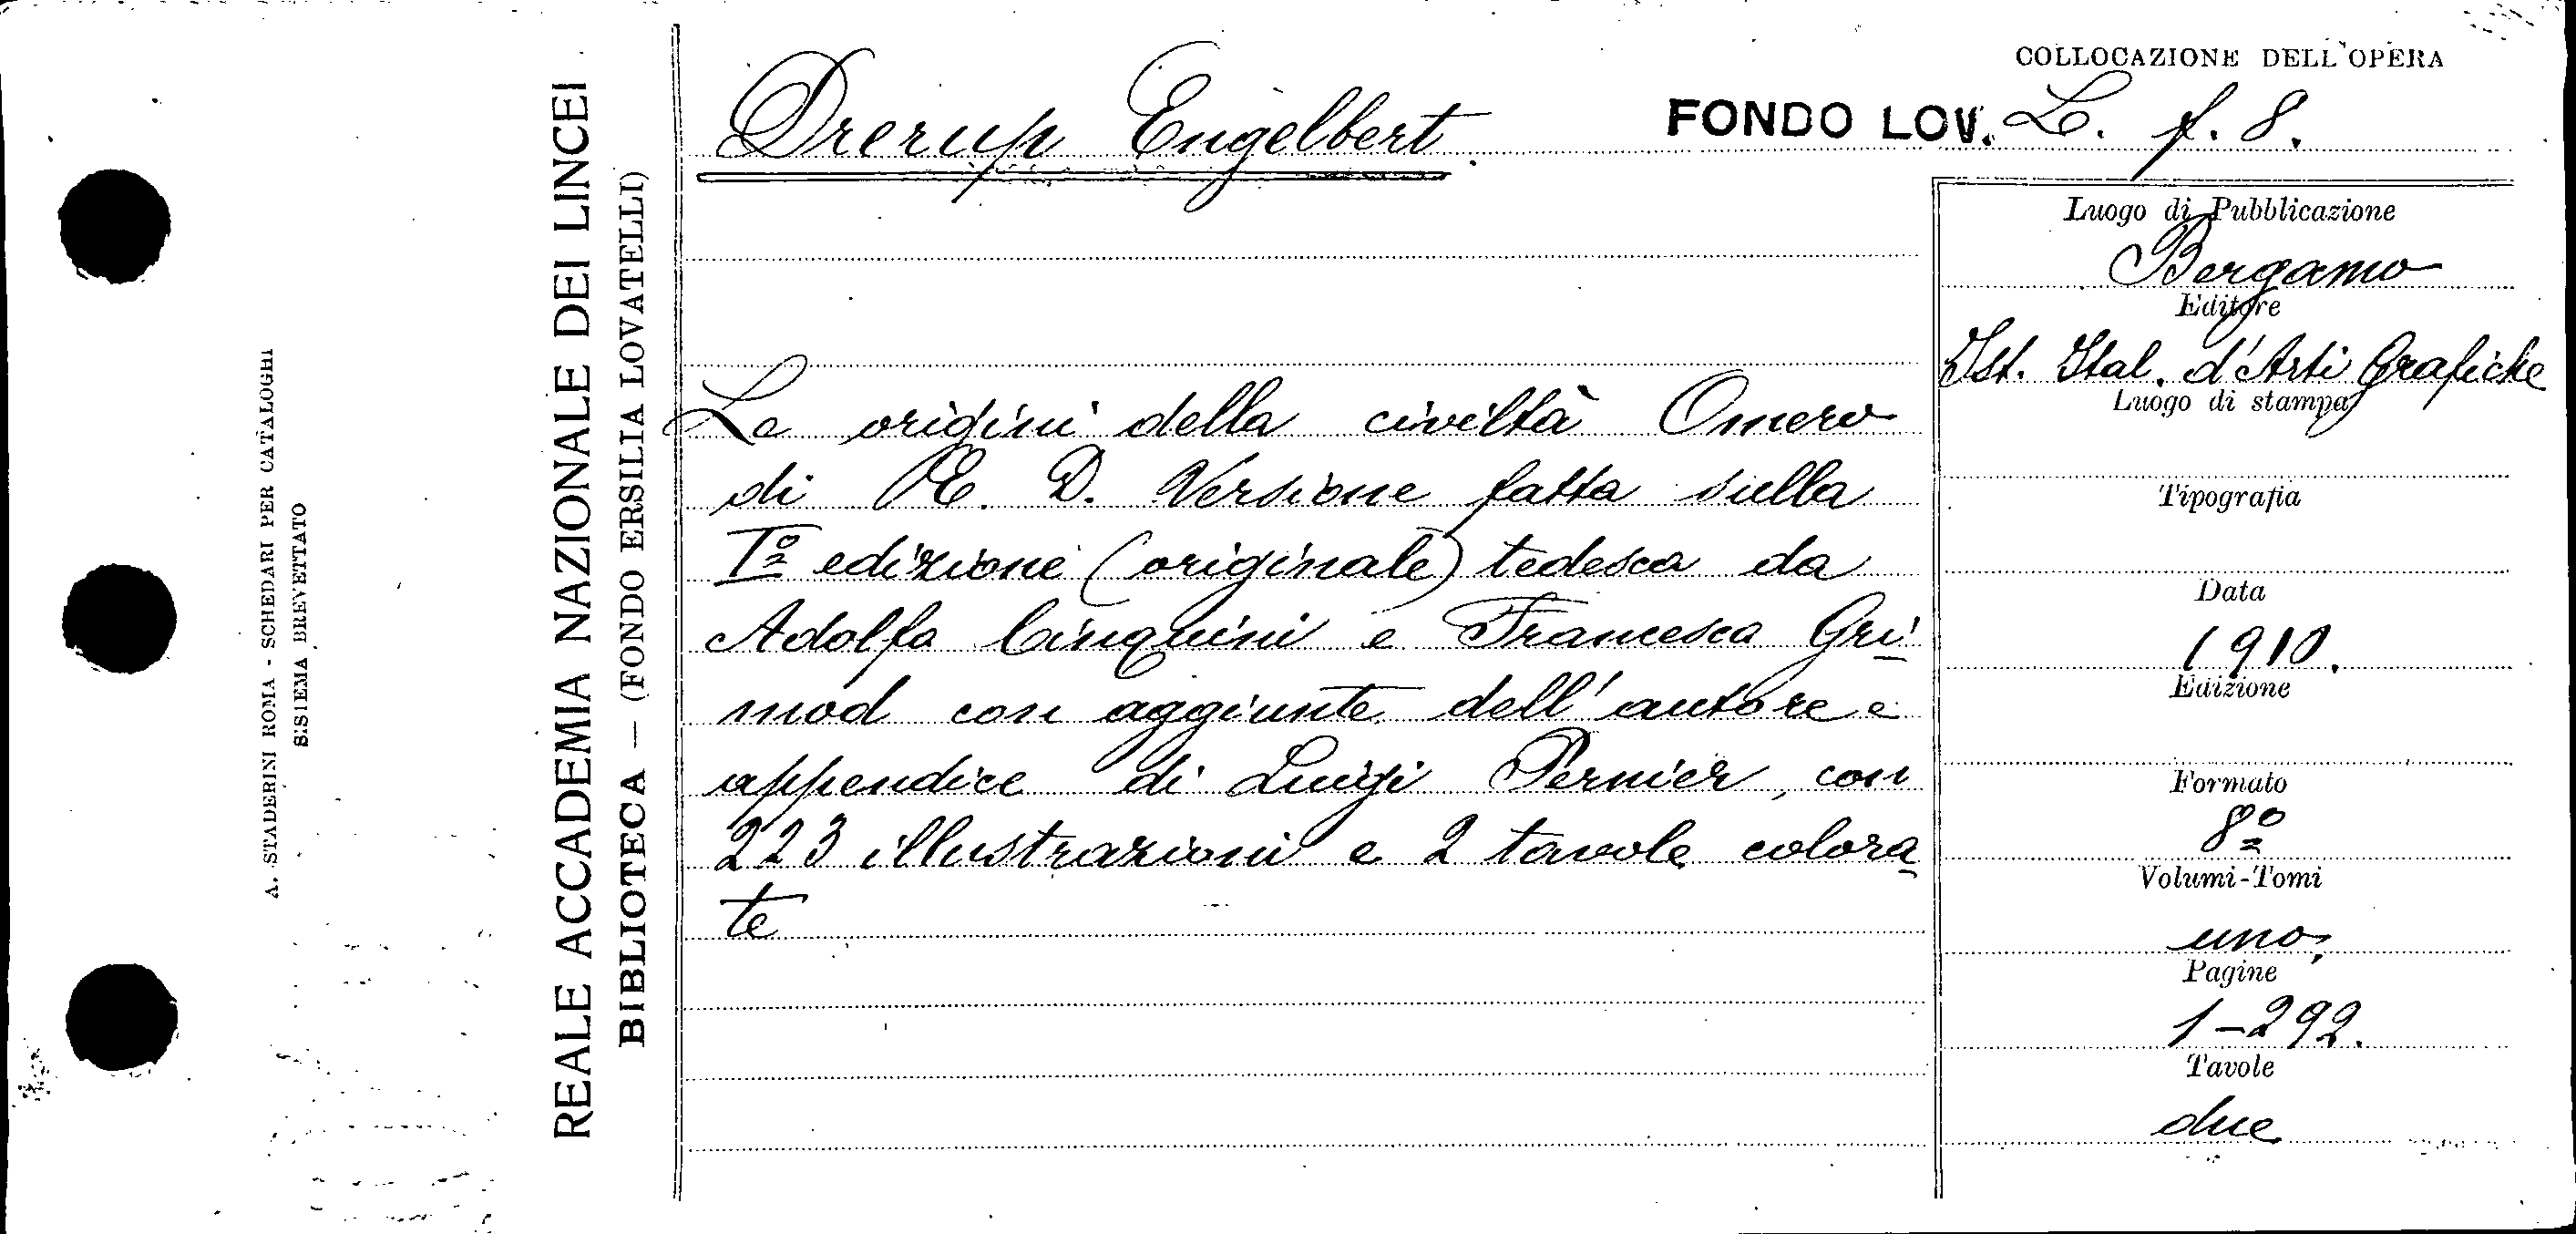 A. STADERINI ROMA - SCHEDARI PER CATALOGHI
SISTEMA BREVETTATO
REALE ACCADEMIA NAZIONALE DEI LINCEI
BIBLIOTECA — (FONDO ERSILIA LOVATELLI)
COLLOCAZIONE DELL'OPERA
Drerup Engelbert.
FONDO LOV. L. f. 8.
Le origini della civiltà Omero
di E. D. Versione fatta sulla
Iª edizione (originale) tedesca da
Adolfo Cinquini e Francesca Gri-
mod con aggiunte dell'autore e
appendice di Luigi Pernier, con
223 illustrazioni e 2 tavole colora-
te
Luogo di Pubblicazione
Bergamo
Editore
Ist. Ital. d'Arti Grafiche
Luogo di stampa
Tipografia
Data
1910.
Edizione
Formato
8º
Volumi-Tomi
uno,
Pagine
1-292.
Tavole
due